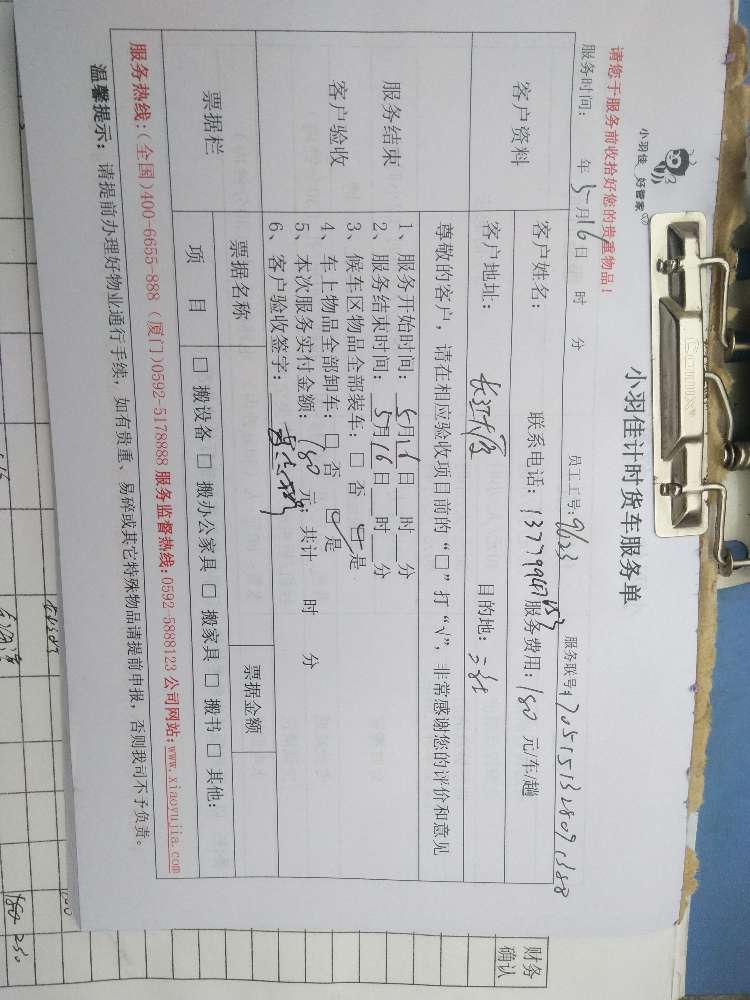 小羽佳 好管家
小羽佳计时货车服务单
请您于服务前收拾好您的贵重物品！
服务时间： 年5月16日 时 分 员工工号：9623 服务联号：
客户资料
客户姓名： 联系电话： 服务费用：180 元/车/趟
客户地址： 目的地：
服务结束
客户验收
尊敬的客户，请在相应验收项目前的“□”打“√”，非常感谢您的评价和意见
1、服务开始时间：5月16日 时 分
2、服务结束时间：5月16日 时 分
3、候车区物品全部装车：□ 否 □ 是
4、车上物品全部卸车：□ 否 □ 是
5、本次服务实付金额：180 元；共计 时 分
6、客户验收签字：
票据栏
票据名称 票据金额
项 目 □ 搬设备 □ 搬办公家具 □ 搬家具 □ 搬书 □ 其他：
服务热线：(全国)400-6655-888 (厦门)0592-5178888 服务监督热线：0592-5888123 公司网站：www.xiaoyujia.com
温馨提示： 请提前办理好物业通行手续，如有贵重、易碎或其它特殊物品请提前申报，否则我司不予负责。
Comix
财务
确认